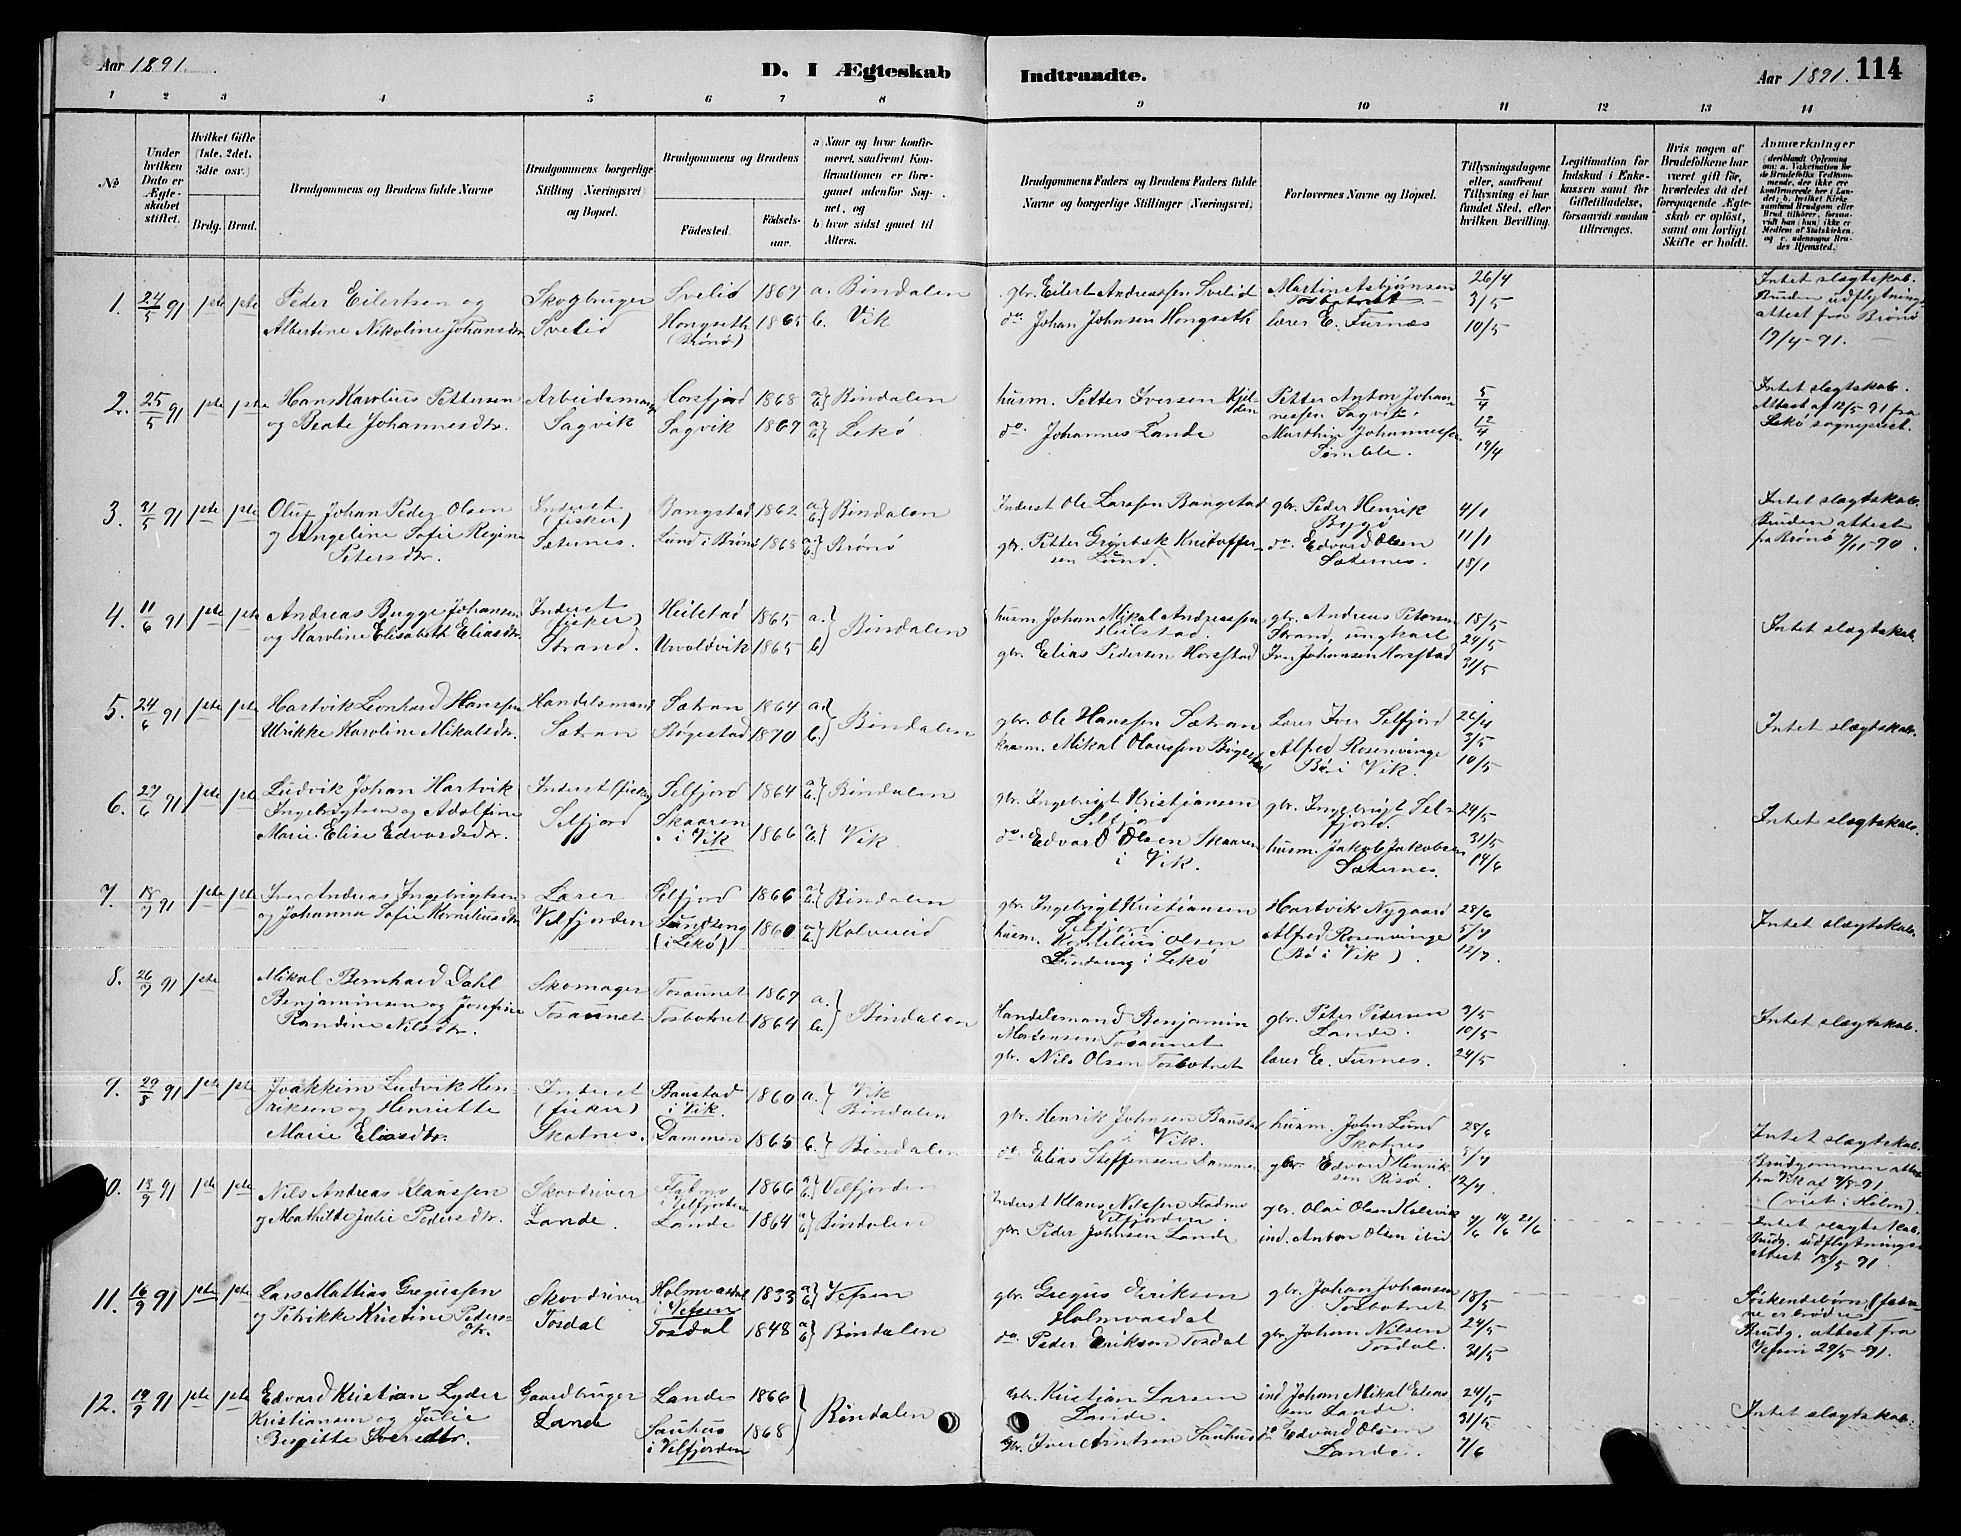 Aar 1891. D. I Ægteskab Indtraadte. Aar 1891. 114
1 2 3 4 5 6 7 8 9 10 11 12 13 14
№
Under hvilken Dato er Ægteskabet stiftet.
Hvilket Gifte (1ste, 2det, 3die osv.)
Brdg. Brud.
Brudgommens og Brudens fulde Navne
Brudgommens borgerlige Stilling (Næringsvei) og Bopæl.
Brudgommens og Brudens
Fødested. Fødselsaar.
a) Naar og hvor konfirmeret, saafremt Konfirmationen er foregaaet udenfor Sognet, og
b) hvor sidst gaaet til Alters.
Brudgommens Faders og Brudens Faders fulde Navne og borgerlige Stillinger (Næringsvei)
Forlovernes Navne og Bopæl.
Tillysningsdagene eller, saafremt Tillysning ei har fundet Sted, efter hvilken Bevilling.
Legitimation for Indskud i Enkekassen samt for Giftetilladelse, forsaavidt saadan tiltrænges.
Hvis nogen af Brudefolkene har været gift før, hvorledes da det foregaaende Ægteskab er opløst, samt om lovligt Skifte er holdt.
Anmærkninger
1. 24/5 91 1ste 1ste Peder Eilertsen og Skogbruger Svelid 1867 a. Bindalen gbr. Eilert Andreassen Svelid Martin Asbjørnsen Tosbotnet 26/4 3/5 Intet slægtskab. Bruden udflytningsattest fra Brønø
Albertine Nikoline Johansdtr. Svelid Hongseth (Brønø) 1865 b. Vik do. Johan Johnsen Hongseth lærer E. Furnes 10/5 19/4-91.
2. 25/5 91 1ste 1ste Hans Karolius Pettersen Arbeidsmand Horsfjord 1868 Bindalen husm. Petter Iversen Petter Anton Johannessen Sagvik 5/4 12/4 Intet slægtskab. Attest af 12/5 91 fra
og Beate Johannesdtr. Sagvik Sagvik 1867 Lekø do. Johannes Lande Marthin Johannessen 19/4 Lekø sogneprest.
3. 31/5 91 1ste 1ste Oluf Johan Peder Olsen Inderst (fisker) Bangstad 1862 Bindalen Inderst Ole Larssen Bangstad gbr. Peder Henrik 4/1 Intet slægtskab. Bruden attest
og Angeline Sofie Regine Petersdtr. Sæternes. Lund i Brønø 1868 Brønø gbr. Petter Kristoffersen Lund. do. Edvard Olsen Sæternes. 11/1 18/1 fra Brønø 9/11-90.
4. 11/6 91 1ste 1ste Andreas Bugge Johansen Inderst (fisker) Heilstad 1865 a. Bindalen husm. Johan Mikal Andreassen Heilstad. gbr. Andreas Petersen 18/5 Intet slægtskab.
og Karoline Elisabeth Eliasdtr. Strand. Urvoldvik 1865 b. gbr. Elias Pedersen Horsstad Strand, ungkarl Iver Johansen Horsstad 24/5 31/5
5. 24/6 91 1ste 1ste Hartvik Leonhard Hanssen Handelsmand Sætran 1864 a. Bindalen gbr. Ole Hanssen Sætran Lærer Iver Selfjord 26/4 Intet slægtskab.
Ulrikke Karoline Mikalsdtr. Sætran Bøgestad 1870 b. husm. Mikal Olaussen Bøgestad Alfred Rosenvinge Bø i Vik. 3/5 10/5
6. 27/6 91 1ste 1ste Ludvik Johan Hartvik Inderst (fisker) Selfjord 1864 Bindalen gbr. Ingebrigt Kristjansen Selfjord gbr. Ingebrigt Selfjord. 24/5 Intet slægtskab.
Ingebrigtsen og Adolfine Marie Elise Edvardsdtr. Selfjord Skaaren i Vik 1866 Vik do. Edvard Olsen Skaaren i Vik. husm. Jakob Jakobsen Sæternes. 31/5 14/6
7. 18/7 91 1ste 1ste Iver Andreas Ingebrigtsen Lærer Selfjord 1866 Bindalen gbr. Ingebrigt Kristiansen Selfjord Hartvik Nygaard 28/6 Intet slægtskab.
og Johanna Sofie Korneliusdtr. Velfjorden Lundseng (i Lekø) 1860 Kolvereid husm. Kornelius Olsen Lundseng i Lekø Alfred Rosenvinge (Bø i Vik). 5/7 12/7
8. 26/7 91 1ste Mikal Bernhard Dahl Skomager Tosaunet 1867 a. Bindalen Handelsmand Benjamin Mortensen Tosaunet gbr. Peter Pedersen Lande. 3/5 10/5 Intet slægtskab.
Benjaminsen og Josefine Randine Nilsdtr. Tosaunet Tosbotnet 1864 b. gbr. Nils Olsen Tosbotnet lærer E. Furnes. 24/5
9. 29/8 91 1ste 1ste Joakkim Ludvik Henriksen og Henriette Inderst (fisker) Baustad i Vik. 1860 a. Vik Bindalen gbr. Henrik Johnsen Baustad i Vik. husm. John Lund Skotnes 28/6 Intet slægtskab.
Marie Eliasdtr. Skotnes. Dammen 1865 b. Bindalen do. Elias Steffensen Dammen gbr. Edvard Henriksen Risø. 5/7 12/7 Brudgommen attest fra Vik af 9/8-91 (viet i Holm).
10. 13/9 91 1ste 1ste Nils Andreas Klaussen Skovdriver Fladmo i Velfjorden 1866 Velfjorden Inderst Klaus Nilssen Fladmo Velfjorden. gbr. Olai Olsen Kalsvik Intet slægtskab.
og Mathilde Julie Pedersdtr. Lande. Lande 1864 Bindalen gbr. Peder Johnsen Lande ind. Anton Olsen ibid 7/6 14/6 21/6 Brudg. udflytningsattest 18/5-91.
11. 16/9 91 1ste 1ste Lars Mattias Gregussen Skovdriver Holmvasdal i Vefsen 1833 Vefsen gbr. Gregus Eriksen Holmvasdal gbr. Johan Johansen Tosbotnet 18/5 Søskendebørn (fædrene er brødre)
og Petrikke Kristine Pedersdtr. Tosdal Tosdal 1848 Bindalen do. Peder Eriksen Tosdal gbr. Johan Nilsen Tosdal. 24/5 31/5 Brudg. attest fra Vefsen 29/5-91.
12. 19/9 91 1ste 1ste Edvard Kristian Lyder Gaardbruger Lande 1866 Bindalen gbr. Kristian Larsen Lande. ind. Johan Mikal Eliassen Lande. 24/5 Intet slægtskab.
Kristiansen og Julie Birgitte Iversdtr. Lande Sauhus i Velfjorden 1868 gbr. Iver Arntsen Sauhus do. Edvard Olsen Lande. 31/5 7/6